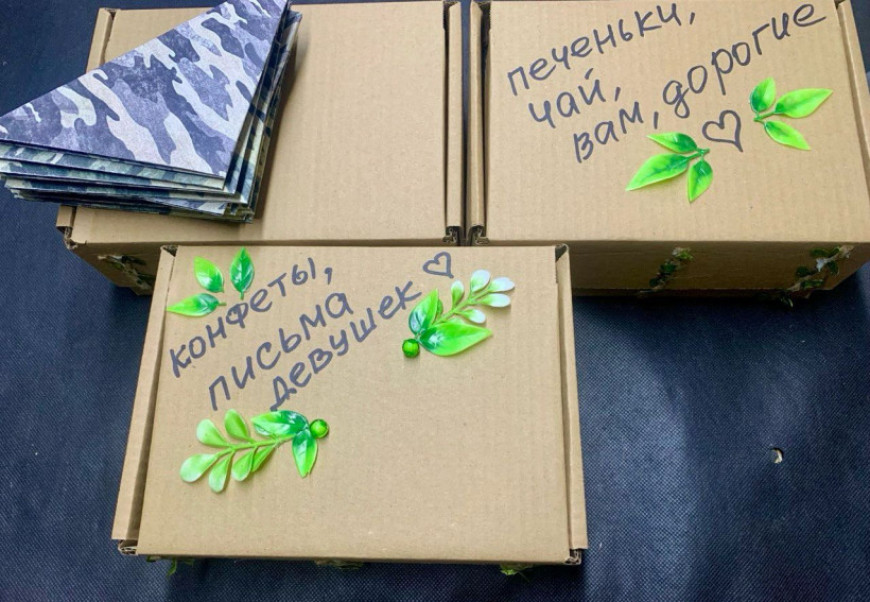 печеньки,
чай,
вам, дорогие
конфеты,
письма
девушек